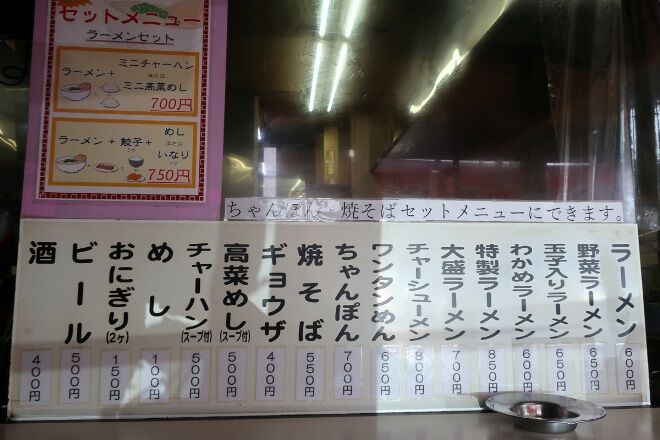 セットメニュー
ラーメンセット
ラーメン+
ミニチャーハン
または
ミニ高菜めし
700円
ラーメン+餃子+
5ケ
めし
または
いなり
2ケ
750円
ちゃんぽん、焼そばセットメニューにできます。
ラーメン 600円
野菜ラーメン 650円
玉子入りラーメン 650円
わかめラーメン 600円
特製ラーメン 850円
大盛ラーメン 700円
チャーシューメン 800円
ワンタンめん 650円
ちゃんぽん 700円
焼そば 550円
ギョウザ 400円
高菜めし(スープ付) 500円
チャーハン(スープ付) 500円
めし 100円
おにぎり(2ヶ) 150円
ビール 500円
酒 400円